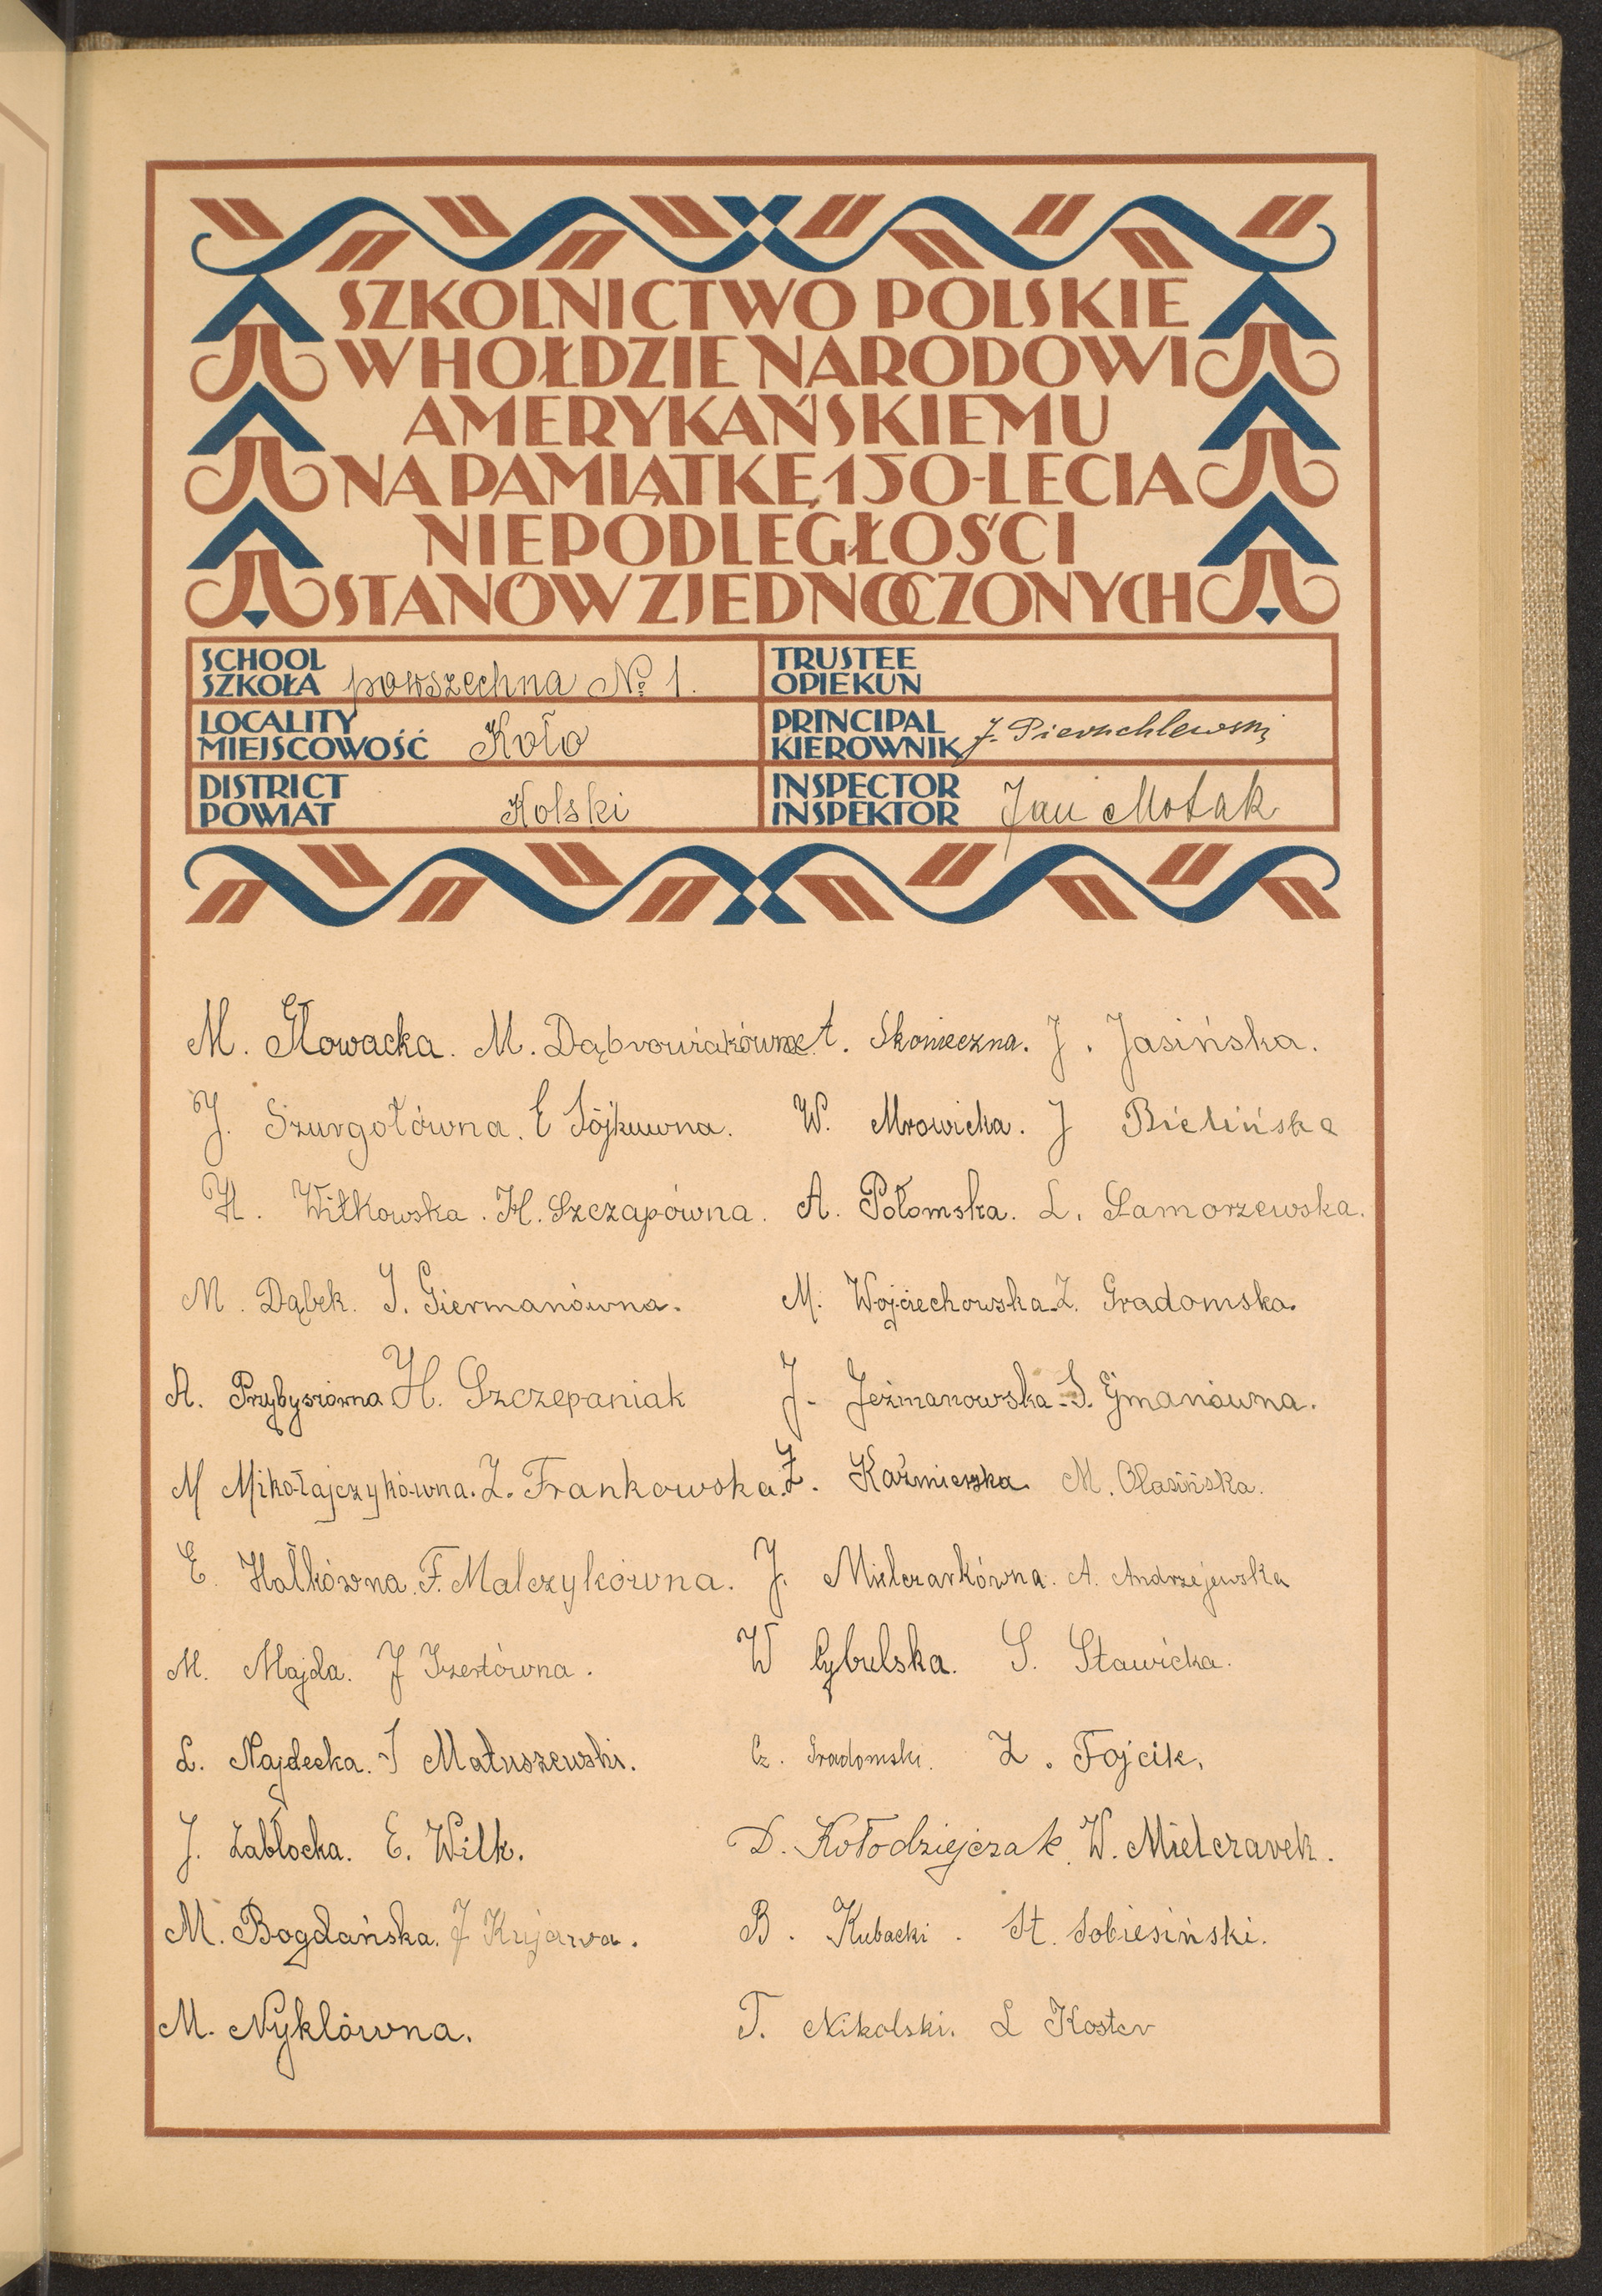 SZKOLNICTWO POLSKIE
W HOŁDZIE NARODOWI
AMERYKAŃSKIEMU
NA PAMIĄTKĘ 150-LECIA
NIEPODLEGŁOŚCI
STANÓW ZJEDNOCZONYCH
SCHOOL
SZKOŁA powszechna № 1.
TRUSTEE
OPIEKUN
LOCALITY
MIEJSCOWOŚĆ Koło
PRINCIPAL
KIEROWNIK J. Pierzchlewski
DISTRICT
POWIAT Kolski
INSPECTOR
INSPEKTOR Jan Motak
M. Głowacka. M. Dąbrowiakówna. A. Skonieczna. J. Jasińska.
J. Szurgotówna. E Sójkuwna. W. Mrowicka. J Bielińska
H. Witkowska. H. Szczapówna. A. Połomska. L. Samorzewska.
M. Dąbek. I. Giermanówna. M. Wojciechowska. Z. Gradomska.
A. Przybysiówna H. Szczepaniak J. Jeżmanowska. S. Ejmanówna.
M Mikołajczykówna. Z. Frankowska. Z. Kaźmierska. M. Olasińska.
E. Hałkówna. F. Malczykówna. J. Mielczarkówna. A. Andrzejewska
M. Majda. J Izertówna. W Cybulska. S. Stawicka.
L. Najdecka. J Matuszewski. Cz. Gradomski. Z. Fojcik.
J. Zabłocka. E. Wilk. D. Kołodziejczak. W. Mielczarek.
M. Bogdańska. J Kujawa. B. Kubacki. St. Sobiesiński.
M. Nyklówna. T. Nikolski. L Koster